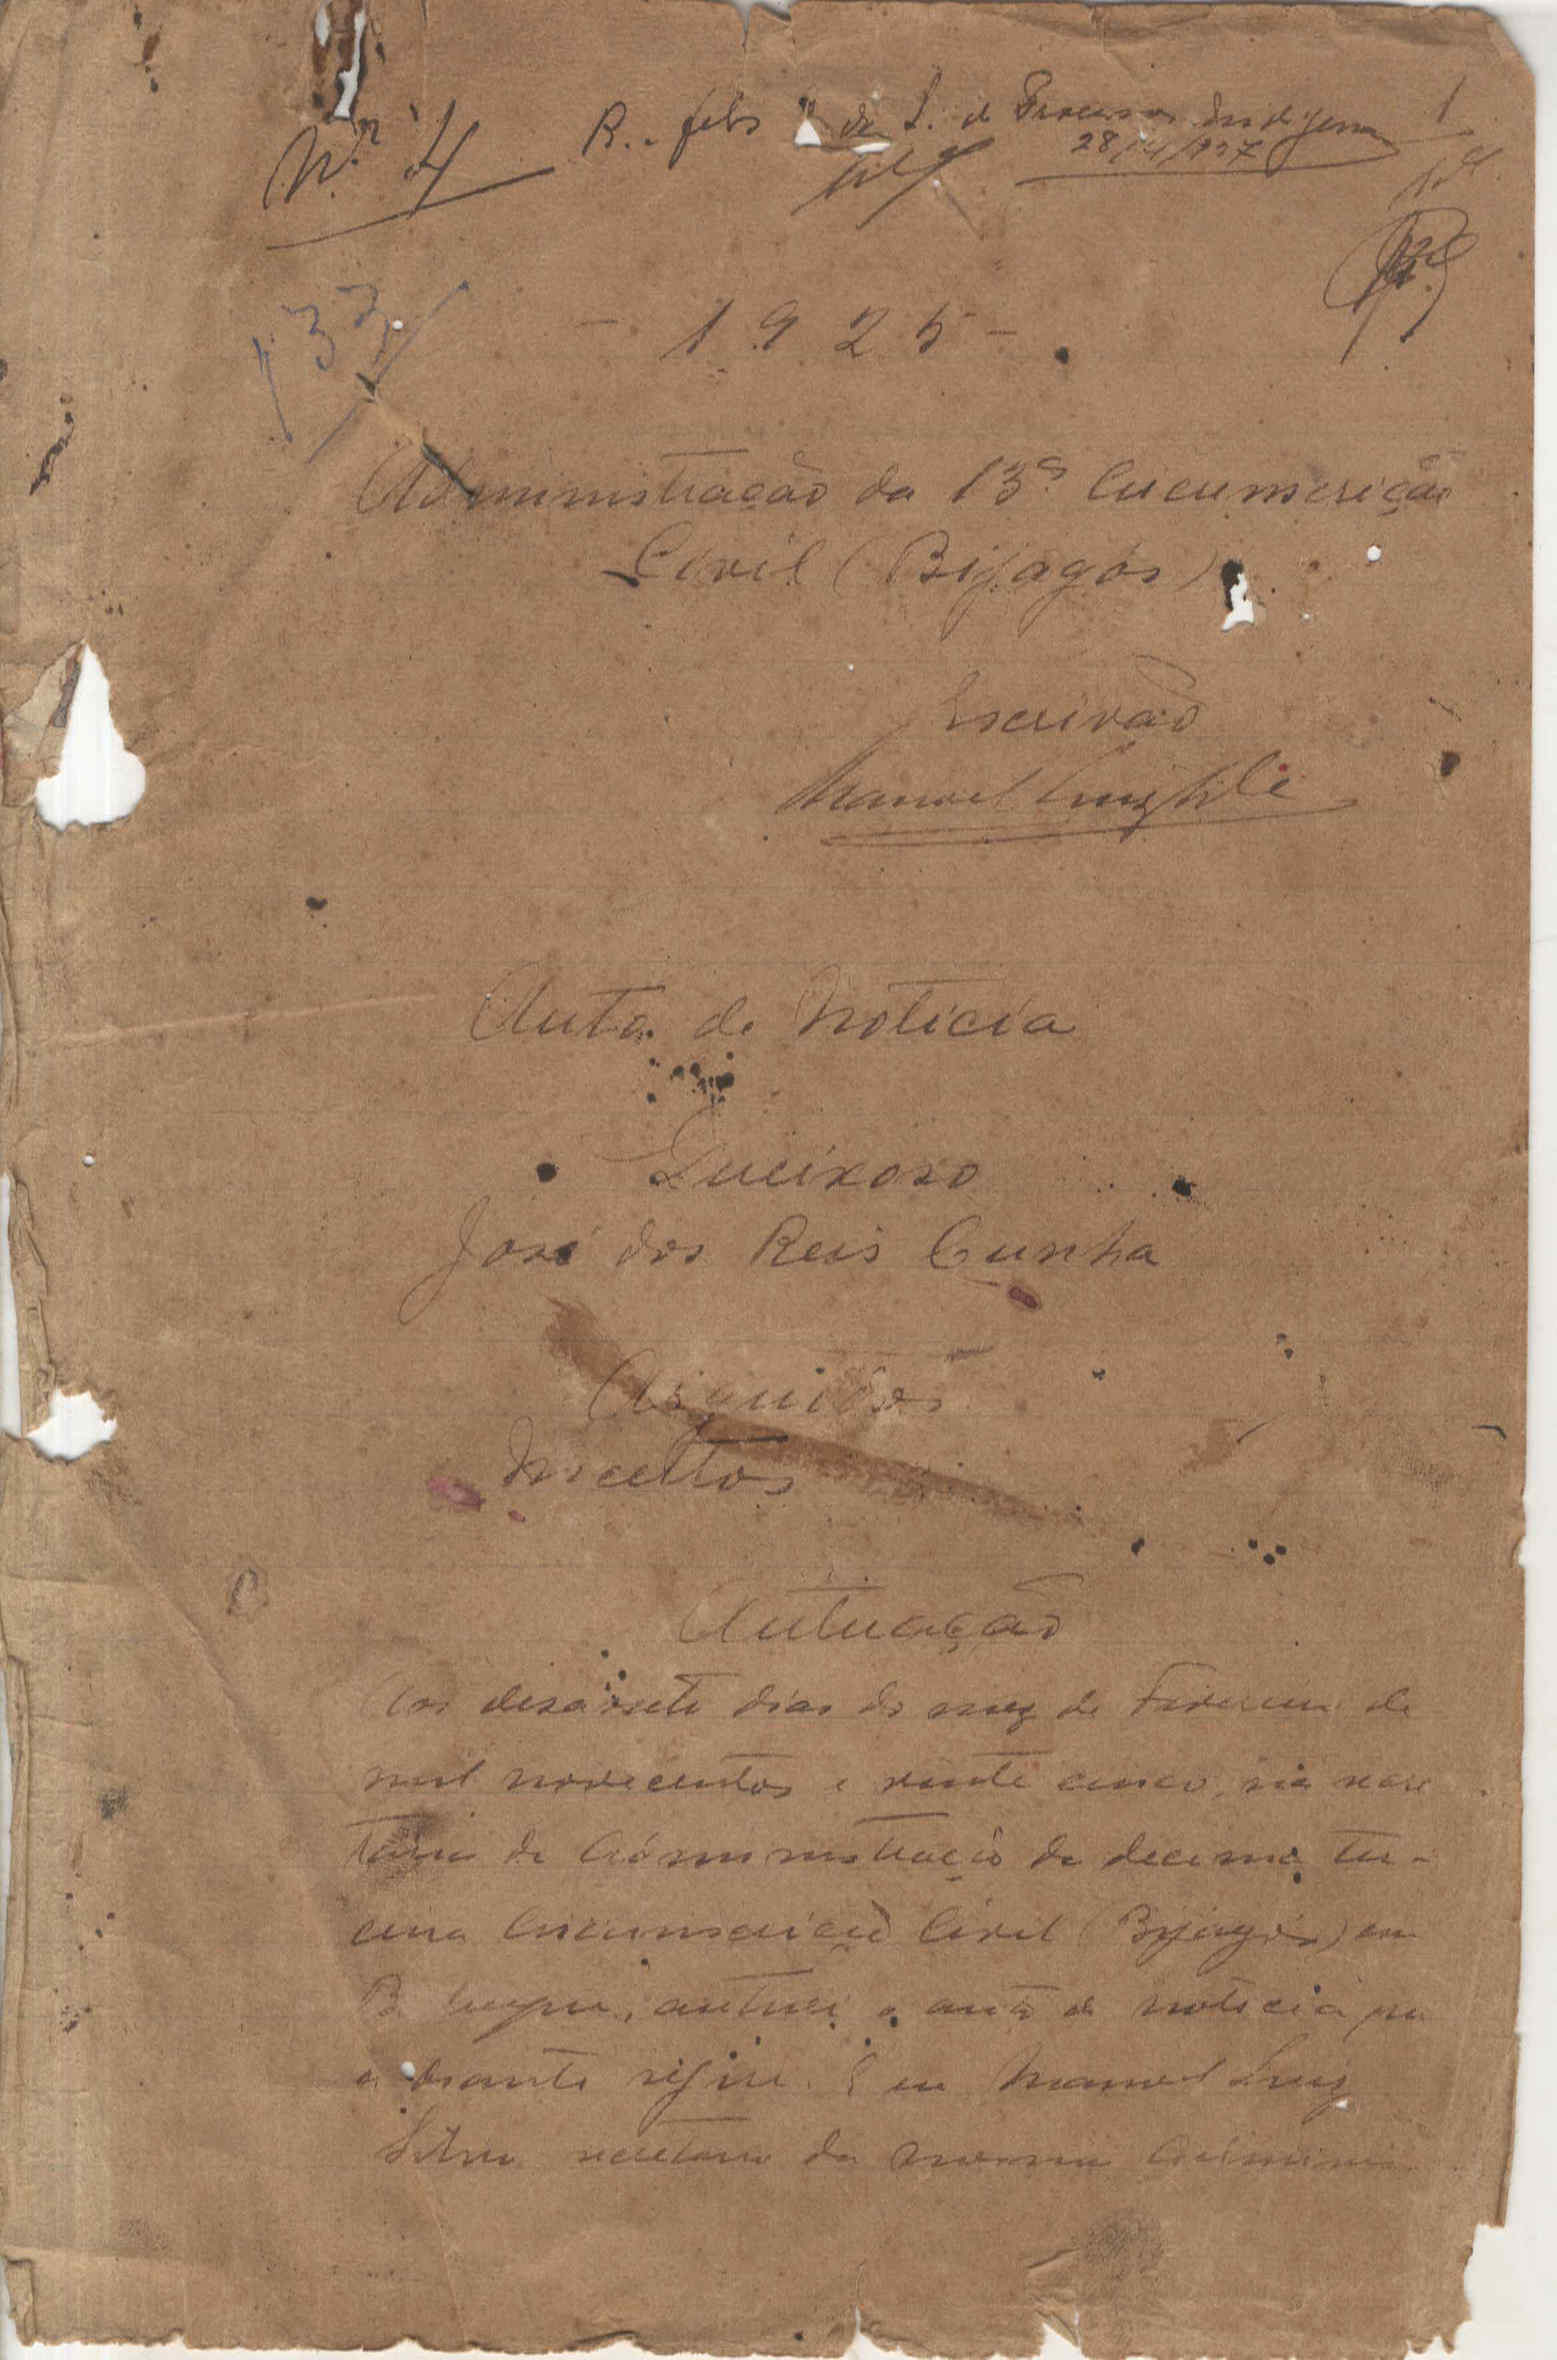 Nº 4
R. a fls do L. de Processos Indigenas
28/4/937
1
133
- 1925 -
Administração da 13ª Circunscrição
Civil (Bijagós)
Escrivão
Manuel Luiz Silva
Auto de Noticia
Queixoso
José dos Reis Cunha
Arguidos
Incertos
Autuação
Aos desassete dias do mez de Fevereiro de
mil novecentos e vinte cinco, na secre
taria da Administração da decima ter-
ceira Circunscrição Civil (Bijagós) em
Bubaque, autuei o auto de noticia que
a diante segue. E eu Manuel Luiz
Silva secretario da mesma Adminis